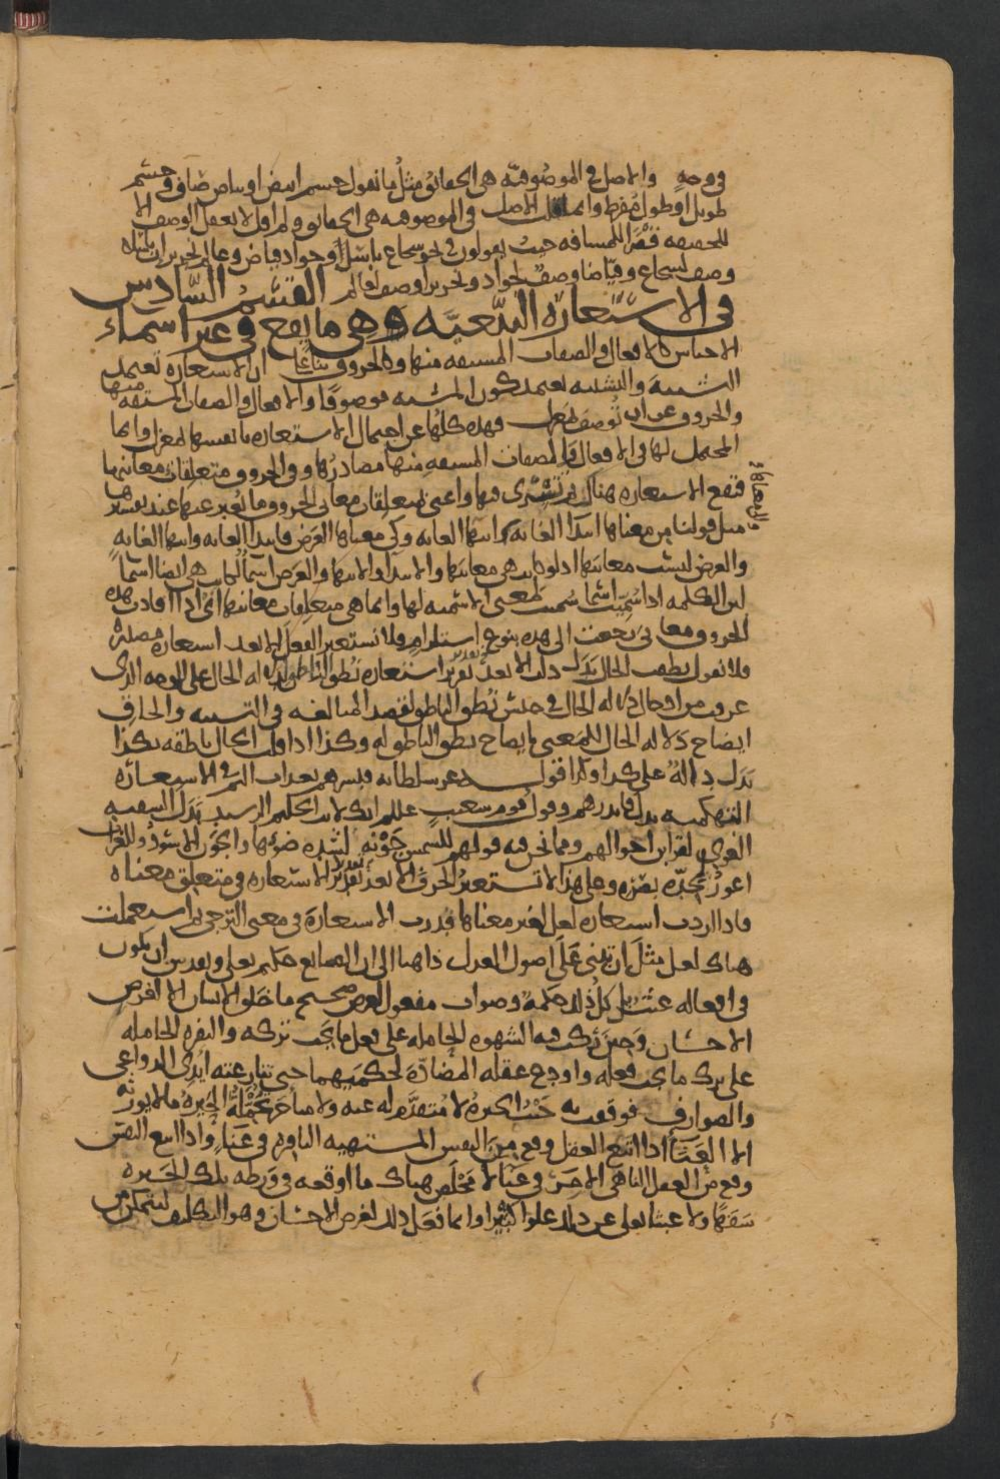 في وجهٍ والاصل في الموصوفيّة هي الحقائق مثل ما تقول جسم ابيض او بياض صاف وجسم
طويل او طول مفرط وانما قلت الاصل في الموصوفيه هي الحقائق ولم اقل لا يعقل الوصف الا
للحقيقه قصرا للمسافه حيث يقولون في نحو شجاع باسل او جواد فياض وعالم نحرير ان باسلا
وصف لشجاع وفياضا وصف لجواد ونحريرا وصف لعالم القسم السادس
في الاستعاره التبعيّه وهي ما يقع في غير اسماء
الاجناس كالافعال والصفات المشتقه منها وكالحروف بناءً على ان الاستعاره تعتمد
التشبيه والتشبيه يعتمد كون المشبه موصوفًا والافعال والصفات المشتقه منها
والحروف عن ان توصف بمعزل فهذه كلها عن احتمال الاستعاره بانفسها بمعزل وانما
المحتمل لها في الافعال والصفات المشتقه منها مصادرها وفي الحروف متعلقات معانيها
فتقع الاستعاره هناك ثم تسري فيها واعني بمتعلقات معاني الحروف ما يُعبر عنها عند تفسيرها
مثل قولنا من معناها ابتدا الغايه والى معناها انتها الغايه وكي معناها الغرض فابتدا الغايه وانتها الغايه
والغرض ليست معانيها اذ لو كانت هي معانيها والابتدا والانتها والغرض اسماً لكانت هي ايضا اسماً
لان الكلمه اذا سُمّيت اسما سُميت لمعنى الاسميه لها وانما هي متعلقات معانيها اي اذا افادت هذه
الحروف معاني رجعت الى هذه بنوع استلزام فلا تستعير الفعل الا بعد استعاره مصدره
فلا تقول نطقت الحال بدل دلت الا بعد تقرير استعاره نُطق الناطق لدلاله الحال على الوجه الذي
عرفت من ادخال دلاله الحال في جنس نُطق الناطق لقصد المبالغه في التشبيه والحاق
ايضاح دلاله الحال للمعنى بايضاح نطق الناطق له وكذا اذا قلت الحال ناطقه بكذا
بدل دالّه على كذا وكذا قول عز سلطانه فبشرهم بعذاب اليم في الاستعاره
التهكميه بدل فانذرهم وقول قوم شعيب عليه انك لانت الحليم الرشيد بدل السفيه
الغوي لقراين احوالهم ومما نحن فيه قولهم للشمس جَوْنه لشده ضوئها والجَون الاسود وللغراب
اعور لحدّه بصره وعلى هذا لا تستعير الحرف الا بعد تقدير الاستعاره في متعلق معناه
فاذا اردت استعاره لعل لغير معناها قدرت الاستعارة في معنى الترجي ثم استعملت
هناك لعل مثل ان تبنى على اصول العدل ذاهبا الى ان الصانع حكيم تعالى وتقدس ان يكون
في افعاله عبث بل كل ذلك حكمه وصواب مفعول لغرض صحيح ما خلق الانسان الا لغرض
الاحسان وحين ركب فيه الشهوه الحامله على فعل ما يجب تركه والنفره الحامله
على ترك ما يجب فعله واودع عقله المضادّة لحكميهما حتى تنازعته ايدي الدواعي
والصوارف فوقفت به حيث الحيرة لا مُتقدَّم له عنه ولا متاخر تحمّله الحَيرة ما لا يورثه
الا العَناء اذا اتبع العقل وقع من النفس المشتهيه النافره في عَناء واذا اتبع النفس
وقع من العقل الناهي الامر في عَنا لا مخلص هناك ما اوقعه في ورطه تلك الحَيره
سَفَهًا ولا عبثا تعالى عن ذلك علوا كبيرا وانما فعَل ذلك لغرض الاحسان وهو التكليف ليتمكن من